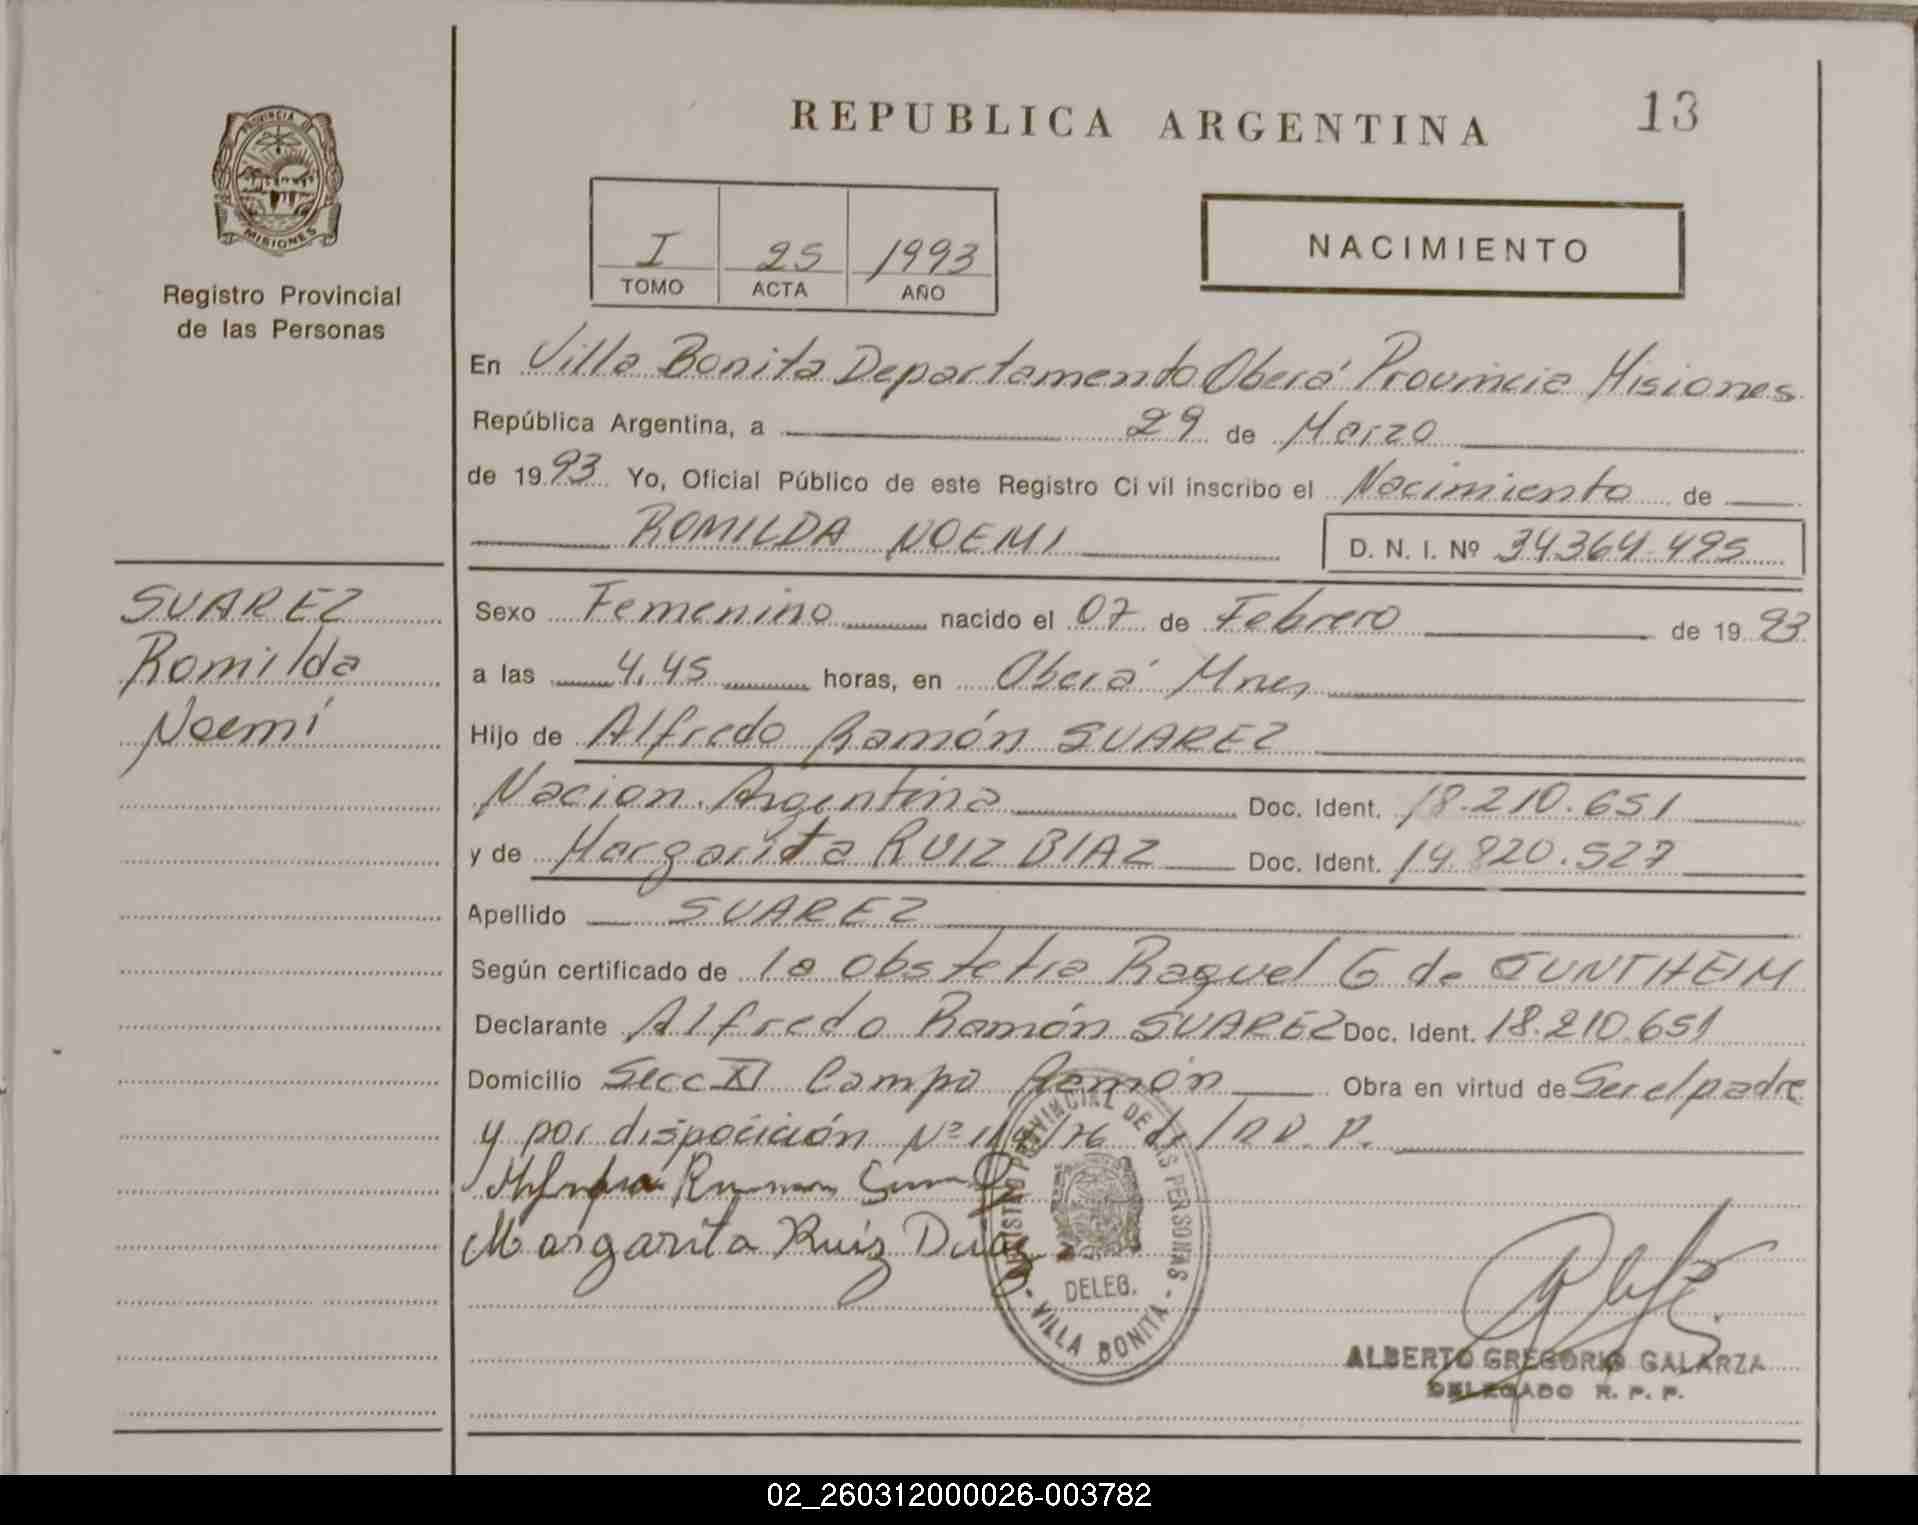 REPUBLICA ARGENTINA
13
PROVINCIA DE
MISIONES
Registro Provincial
de las Personas
I 25 1993
TOMO ACTA AÑO
NACIMIENTO
En Villa Bonita Departamento Oberá Provincia Misiones
República Argentina, a 29 de Marzo
de 1993 Yo, Oficial Público de este Registro Civil inscribo el Nacimiento de
ROMILDA NOEMI D. N. I. Nº 34.364.495
SUAREZ
Romilda
Noemí
Sexo Femenino nacido el 07 de Febrero de 1993
a las 4,45 horas, en Oberá Mnes,
Hijo de Alfredo Ramón SUAREZ
Nacion. Argentina Doc. Ident. 18.210.651
y de Margarita RUIZ DIAZ Doc. Ident. 14.820.527
Apellido SUAREZ
Según certificado de la obstetra Raquel G de SUNTHEIM
Declarante Alfredo Ramón SUAREZ Doc. Ident. 18.210.651
Domicilio Secc XI Campo Ramón Obra en virtud de Ser el padre
y por dispocición Nº /76
Ramon
Margarita Ruiz Diaz
REGISTRO PROVINCIAL DE LAS PERSONAS
DELEG.
VILLA BONITA
ALBERTO GREGORIO GALARZA
DELEGADO R. P. P.
02_260312000026-003782